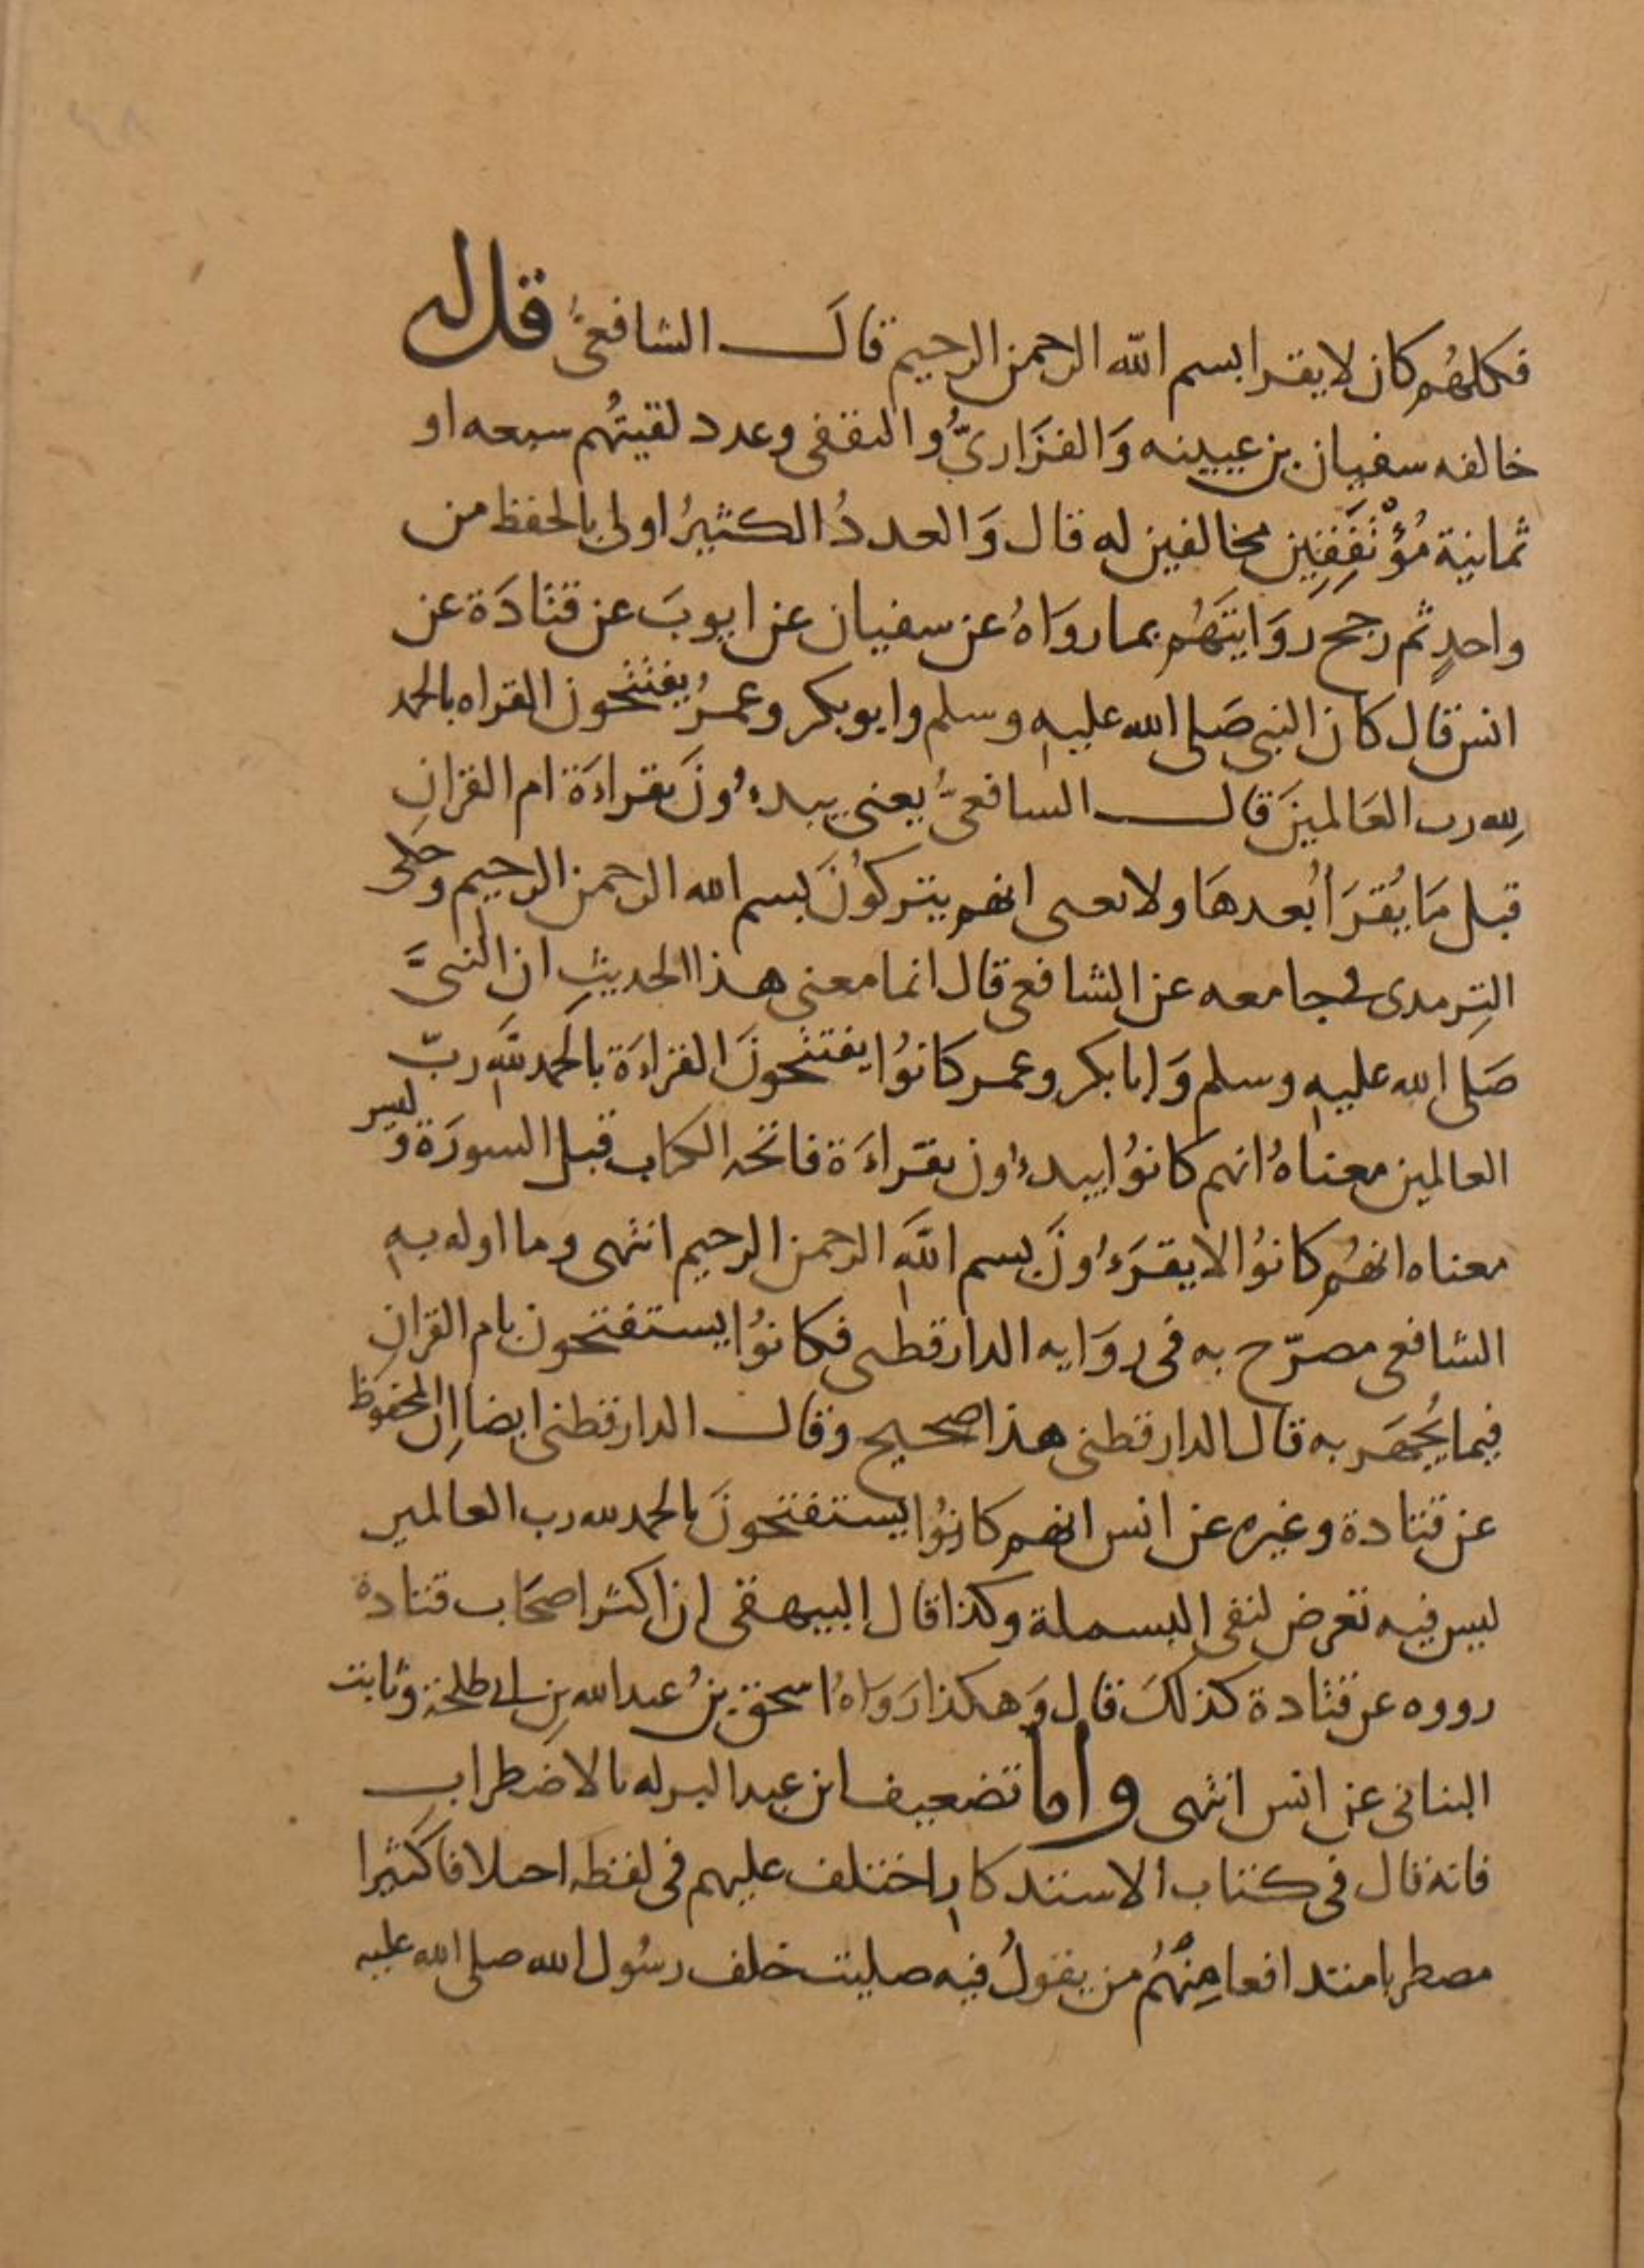 فكلهُم كان لا يقرا بسم الله الرحمن الرحيم قالَ الشافعيُّ قل له
خالفه سفيان بن عيينه وَالفَزَاريُّ والثقفى وعدد لقيتُهم سبعه او
ثمانية مُؤْتَفِقِين مخالفين له قال وَالعددُ الكثيرُ اولى بالحفظ من
واحدٍ ثم رجح روَايتَهُم بما روَاهُ عن سفيان عن ايوبَ عن قتادَة عن
انس قال كان النبى صَلى الله عليه وسلم وابو بكر وعمرُ يفتتحون القراه بالحمد
لله رب العَالمينَ قال السافعىُّ يعنى يبدءُونَ بقراءَة ام القرانِ
قبل مَا يُقرَأ بُعدهَا ولا يعنى انهم يتركُونَ بسم الله الرحمن الرحيم وحكى
التِرمدى فى جامعه عن الشافعى قال انما معنى هذا الحديثِ ان النبىَّ
صَلى الله عليه وسلم وَابا بكر وعمر كانوُا يفتتحونَ القراءَة بالحمد للَّهِ ربّ
العالمين معناهُ انهم كانوُا يبدءُون بقراءَة فاتحه الكتاب قبل السورَة وليس
معناه انهُم كانوُا لا يقرَءُونَ بسم اللَّهِ الرحمن الرحيم انتهى وما اوله بهِ
الشافعى مصرّح به فى روَايه الدارقطنى فكانوُا يستفتحون بام القرانِ
فيما يُجهَر به قال الدارقطنى هذا صحيح وقال الدارقطنى ايضا اِن المحفوظ
عن قتادة وغيره عن انس انهم كانوُا يستفتحونَ بالحمد لله رب العالمين
ليس فيه تعرض لنفى البسملة وكذا قال البيهقى ان اكثر اصحَاب قتادة
رووه عن قتادة كذلكَ قال وَهكذا رَوَاهُ اسحق بنُ عبد الله بنِ ابى طلحة وثابت
البنانى عن انس انتهى واما تضعيف ابن عبد البر له بالاضطراب
فانه قال فى كتاب الاستذكار اختلف عليهم فى لفظه احتلافا كثيرا
مصطربا متدافعا مِنْهُم من يقولُ فيه صليت خلف رسُول الله صلى الله عليه